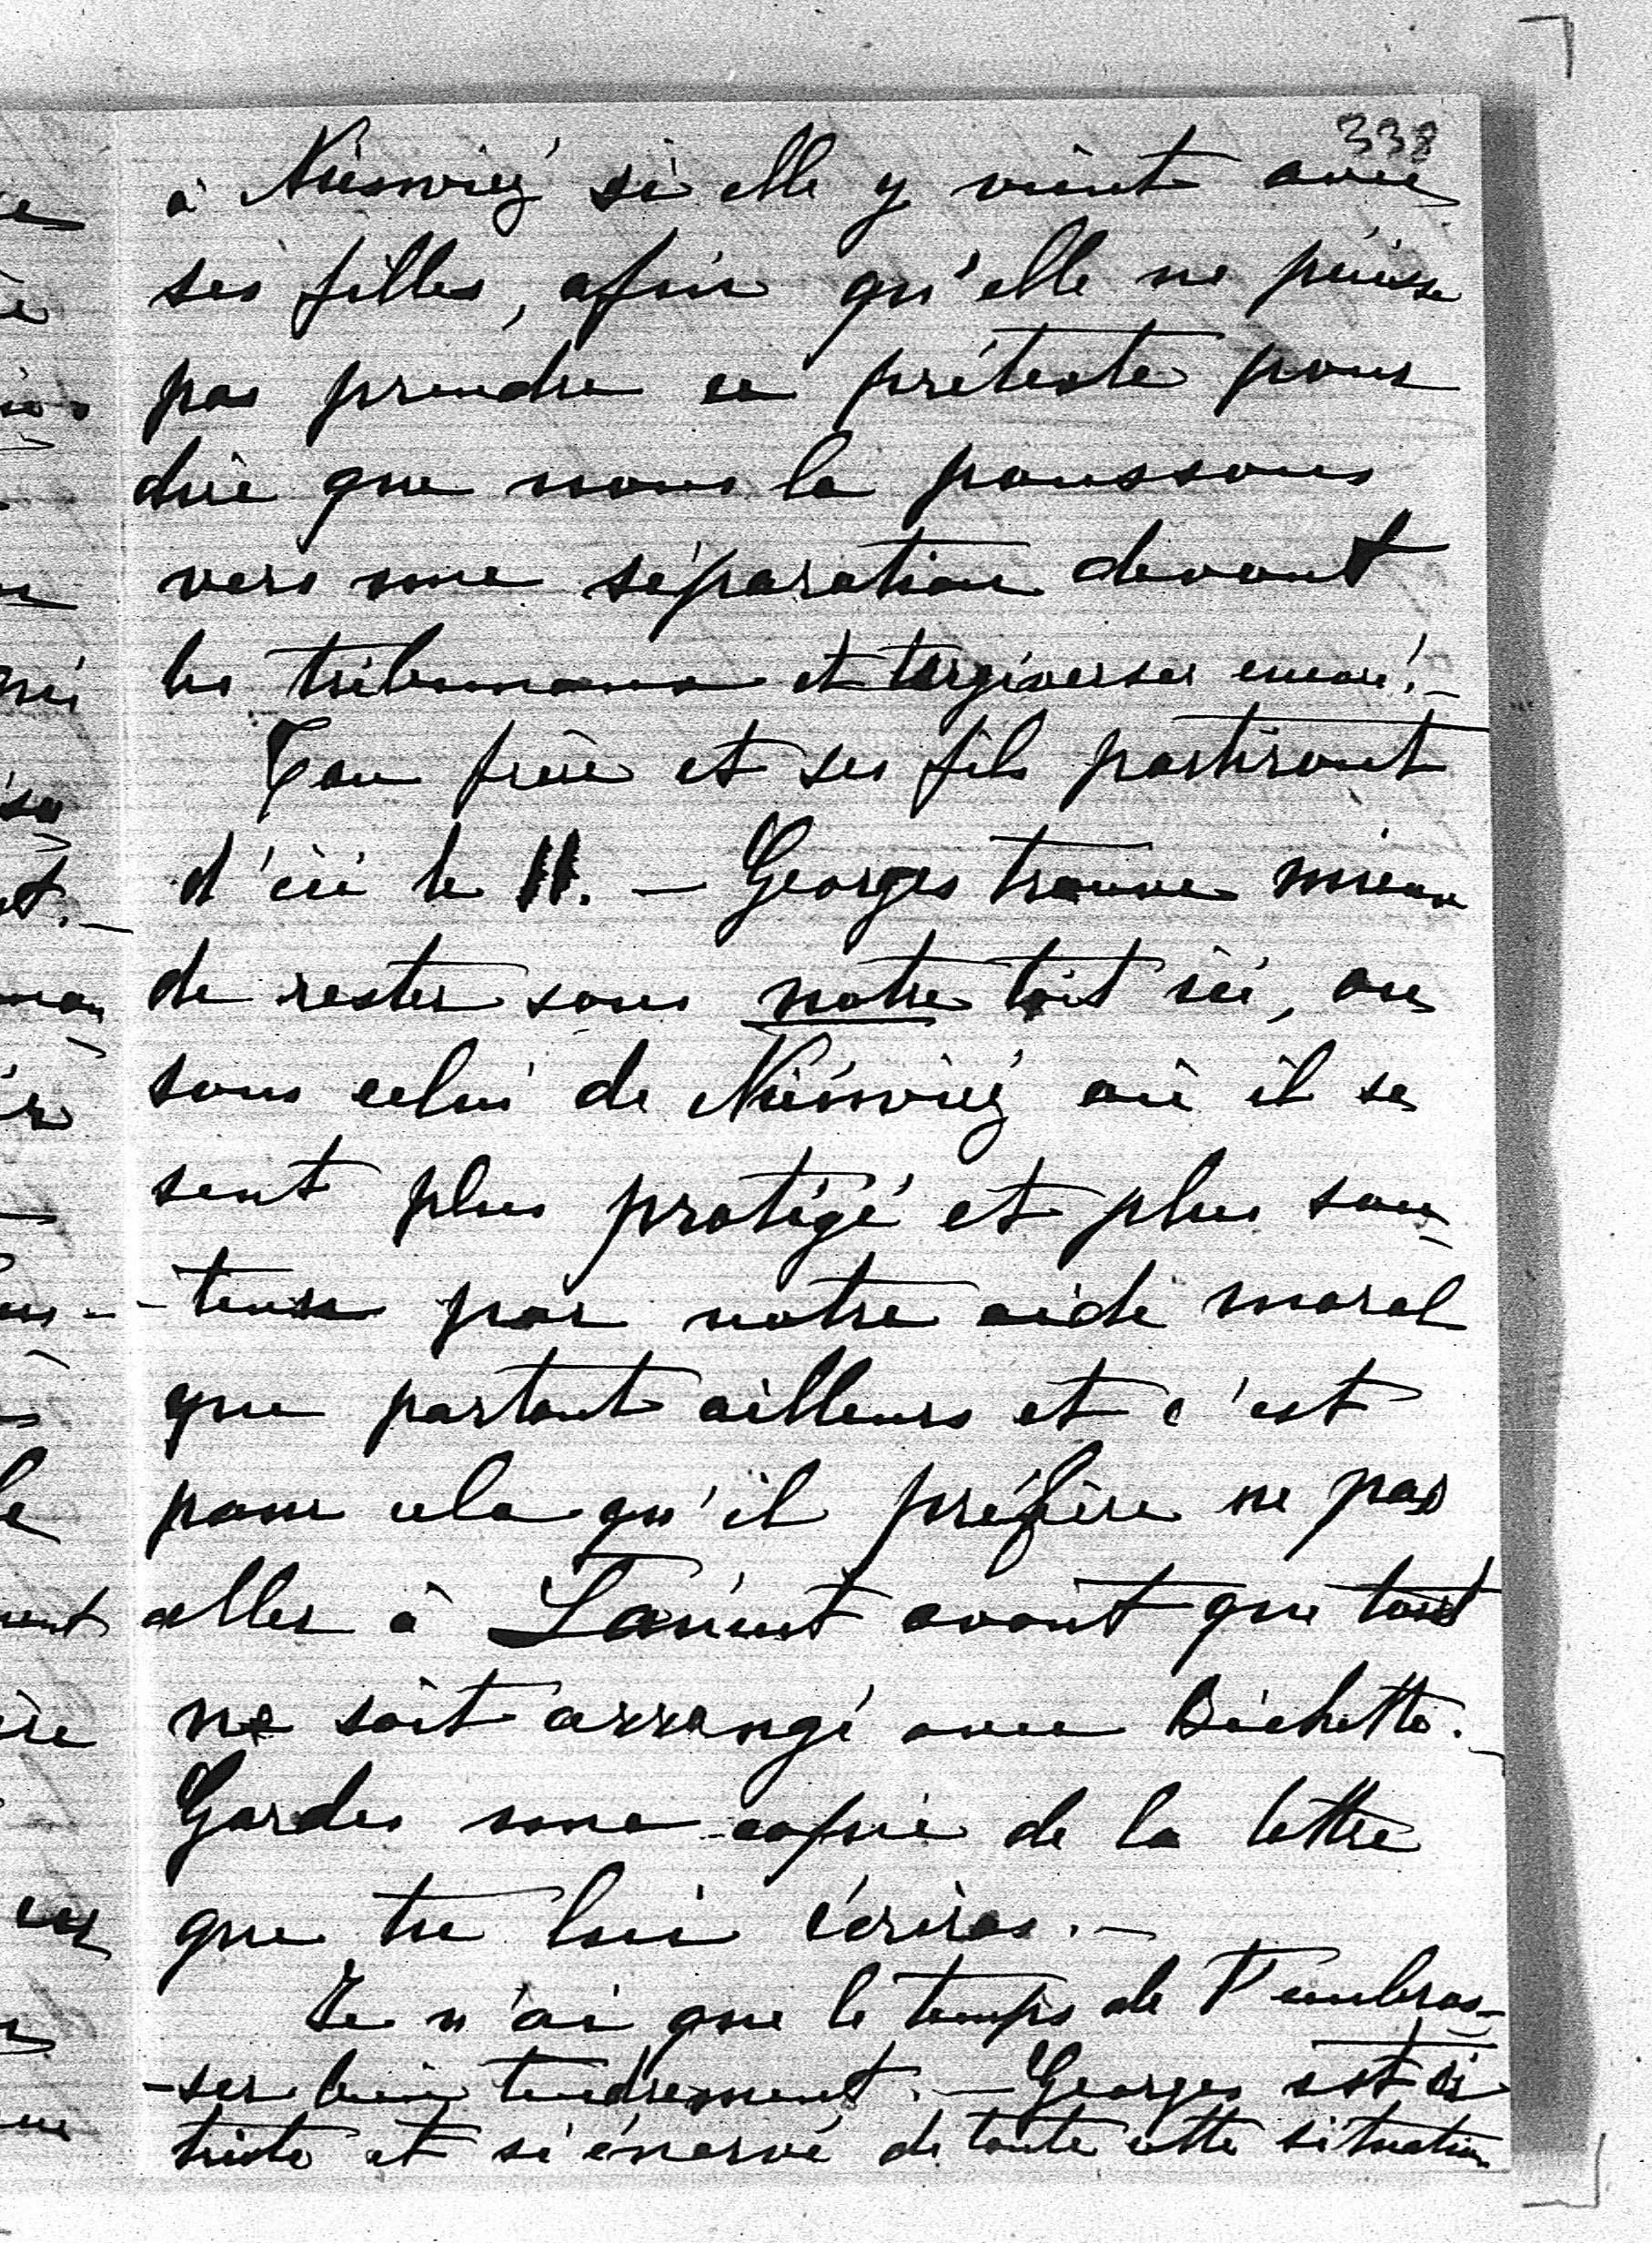 338
à Niéswież si elle y vient avec
ses filles, afin qu'elle ne puisse
pas prendre ce prétexte pour
dire que nous la poussons
vers une séparation devant
les tribunaux et tergiverser encore! –
Ton frère et ses fils partiront
d'ici le 11. – Georges trouve mieux
de rester sous notre toit ici, ou
sous celui de Niéswież où il se
sent plus protégé et plus sou-
-tenu par notre aide moral
que partout ailleurs et c'est
pour cela qu'il préfère ne pas
aller à Łancut avant que tout
ne soit arrangé avec Bichette. –
Gardes une copie de la lettre
que tu lui écriras. –
Je n'ai que le temps de t'embras-
-ser bien tendrement. – Georges est si
triste et si énervé de toute cette situation